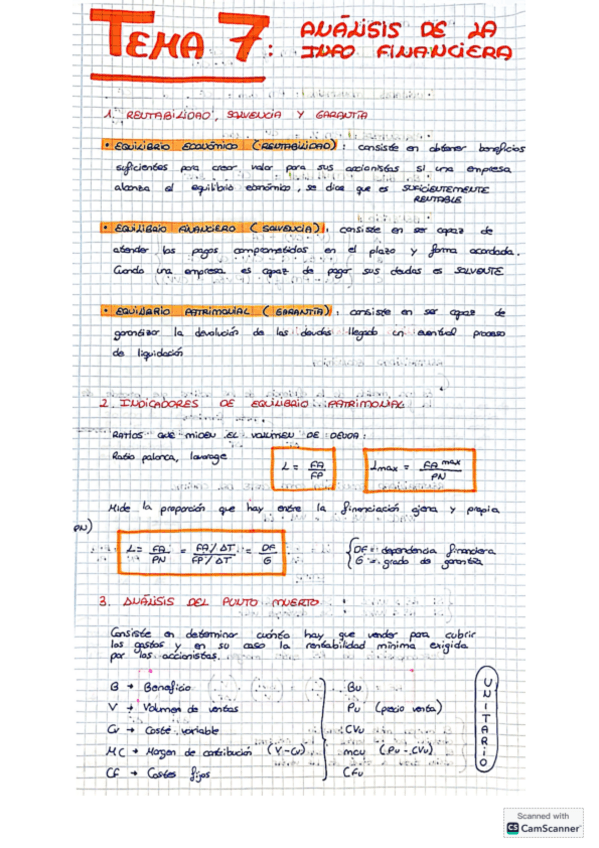 TEMA 7: ANÁLISIS DE LA
INFO FINANCIERA
1. RENTABILIDAD, SOLVENCIA Y GARANTÍA
• EQUILIBRIO ECONÓMICO (RENTABILIDAD): consiste en obtener beneficios
suficientes para crear valor para sus accionistas si una empresa
alcanza el equilibrio económico, se dice que es SUFICIENTEMENTE
RENTABLE
• EQUILIBRIO FINANCIERO (SOLVENCIA): consiste en ser capaz de
atender los pagos comprometidos en el plazo y forma acordada.
Cuando una empresa es capaz de pagar sus deudas es SOLVENTE
• EQUILIBRIO PATRIMONIAL (GARANTÍA): consiste en ser capaz de
garantizar la devolución de las deudas llegado un eventual proceso
de liquidación
2. INDICADORES DE EQUILIBRIO PATRIMONIAL
RATIOS QUE MIDEN EL VOLUMEN DE DEUDA:
Ratio palanca, laverage
L = FA / FP
Lmax = FA max / PN
Mide la proporción que hay entre la financiación ajena y propia
PN)
L = FA / PN = FA/ΔT / FP/ΔT = DF / G
DF = dependencia financiera
G = grado de garantía
3. ANÁLISIS DEL PUNTO MUERTO
Consiste en determinar cuánto hay que vender para cubrir
los gastos y en su caso la rentabilidad mínima exigida
por los accionistas.
B → Beneficio Bu
V → Volumen de ventas Pu (precio venta)
Cv → Coste variable CVu
MC → Margen de contribución (V-Cv) mcu (Pu-CVu)
CF → Costes fijos CFu
UNITARIO
Scanned with
CS CamScanner